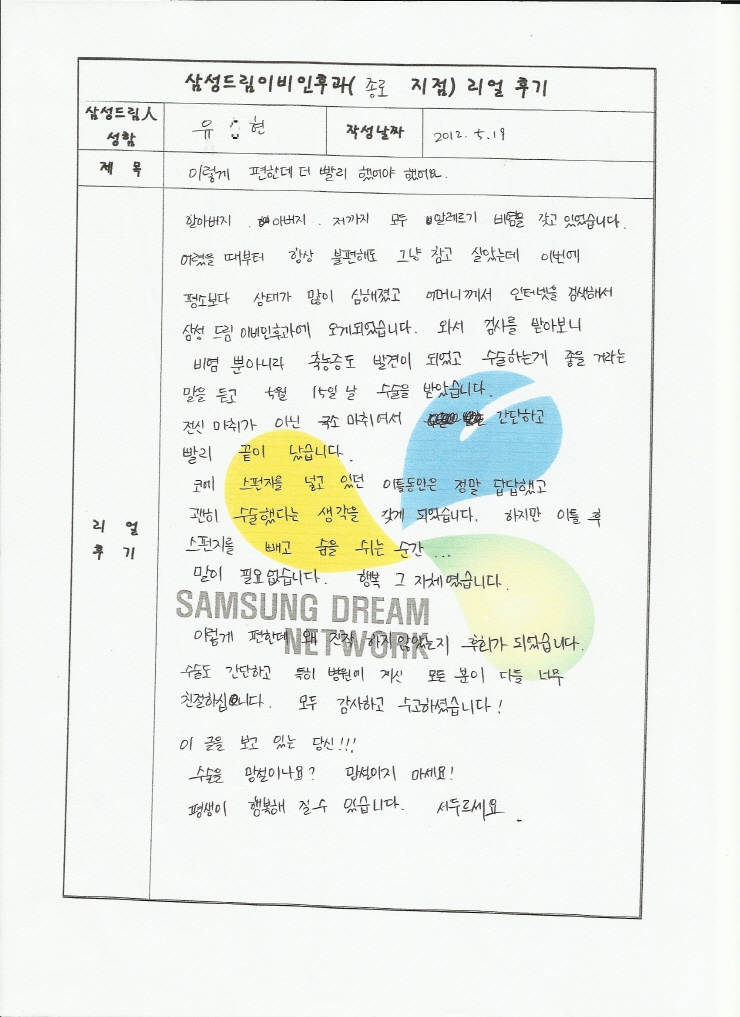 삼성드림이비인후과( 종로 지점) 리얼 후기
삼성드림人 성함
유 현
작성날짜
2012. 5. 19
제 목
이렇게 편한데 더 빨리 했어야 했어요.
리 얼 후 기
할아버지. 아버지. 저까지 모두 알레르기 비염을 갖고 있었습니다.
어렸을 때부터 항상 불편해도 그냥 참고 살았는데 이번에
평소보다 상태가 많이 심해졌고 어머니께서 인터넷을 검색해서
삼성 드림 이비인후과에 오게되었습니다. 와서 검사를 받아보니
비염 뿐아니라 축농증도 발견이 되었고 수술하는게 좋을 거라는
말을 듣고 5월 15일 날 수술을 받았습니다.
전신 마취가 아닌 국소 마취여서 간단하고
빨리 끝이 났습니다.
코에 스펀지를 넣고 있던 이틀동안은 정말 답답했고
괜히 수술했다는 생각을 갖게 되었습니다. 하지만 이틀 후
스펀지를 빼고 숨을 쉬는 순간...
말이 필요없습니다. 행복 그 자체였습니다.
SAMSUNG DREAM
NETWORK
이렇게 편한데 왜 진작 하지않았는지 후회가 되었습니다.
수술도 간단하고 특히 병원에 계신 모든 분이 다들 너무
친절하십니다. 모두 감사하고 수고하셨습니다!
이 글을 보고 있는 당신!!!
수술을 망설이나요? 망설이지 마세요!
평생이 행복해 질 수 있습니다. 서두르세요.